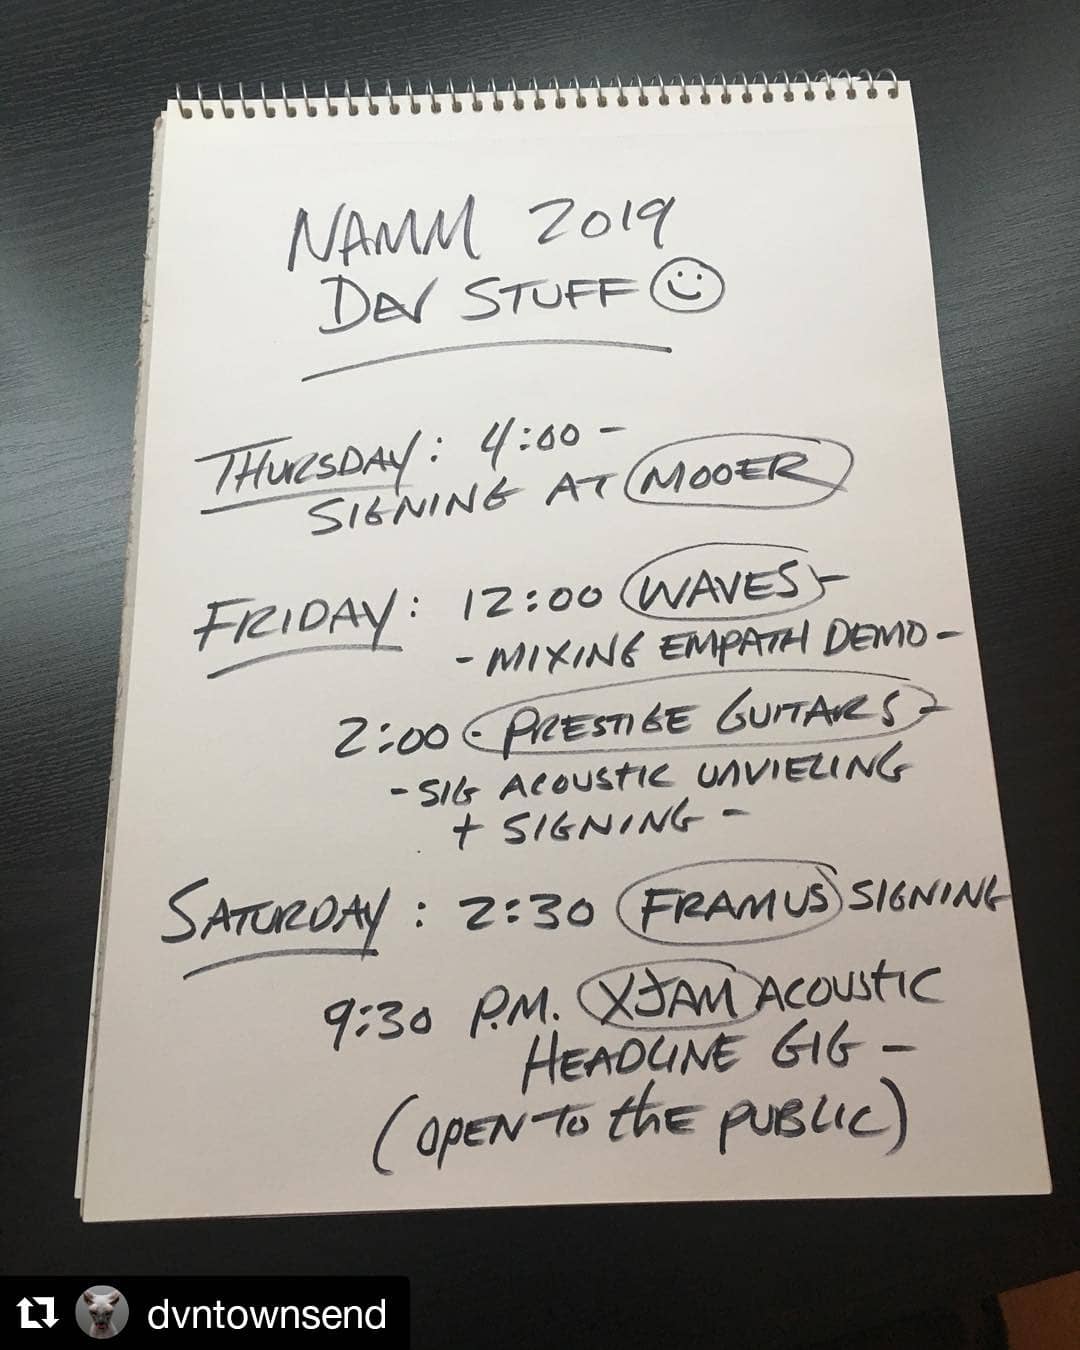 NAMM 2019
DEV STUFF
THURSDAY: 4:00 -
SIGNING AT MOOER
FRIDAY: 12:00 WAVES -
- MIXING EMPATH DEMO -
2:00 - PRESTIGE GUITARS -
- SIG ACOUSTIC UNVIELING
+ SIGNING -
SATURDAY: 2:30 FRAMUS SIGNING
9:30 P.M. XJAM ACOUSTIC
HEADLINE GIG -
(OPEN TO thE PUBLIC)
dvntownsend